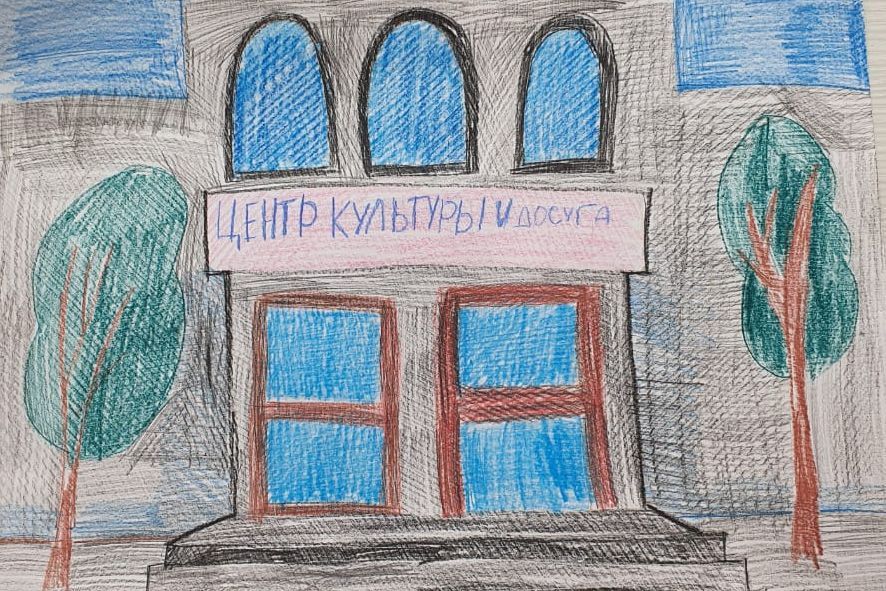 ЦЕНТР КУЛЬТУРЫ И ДОСУГА